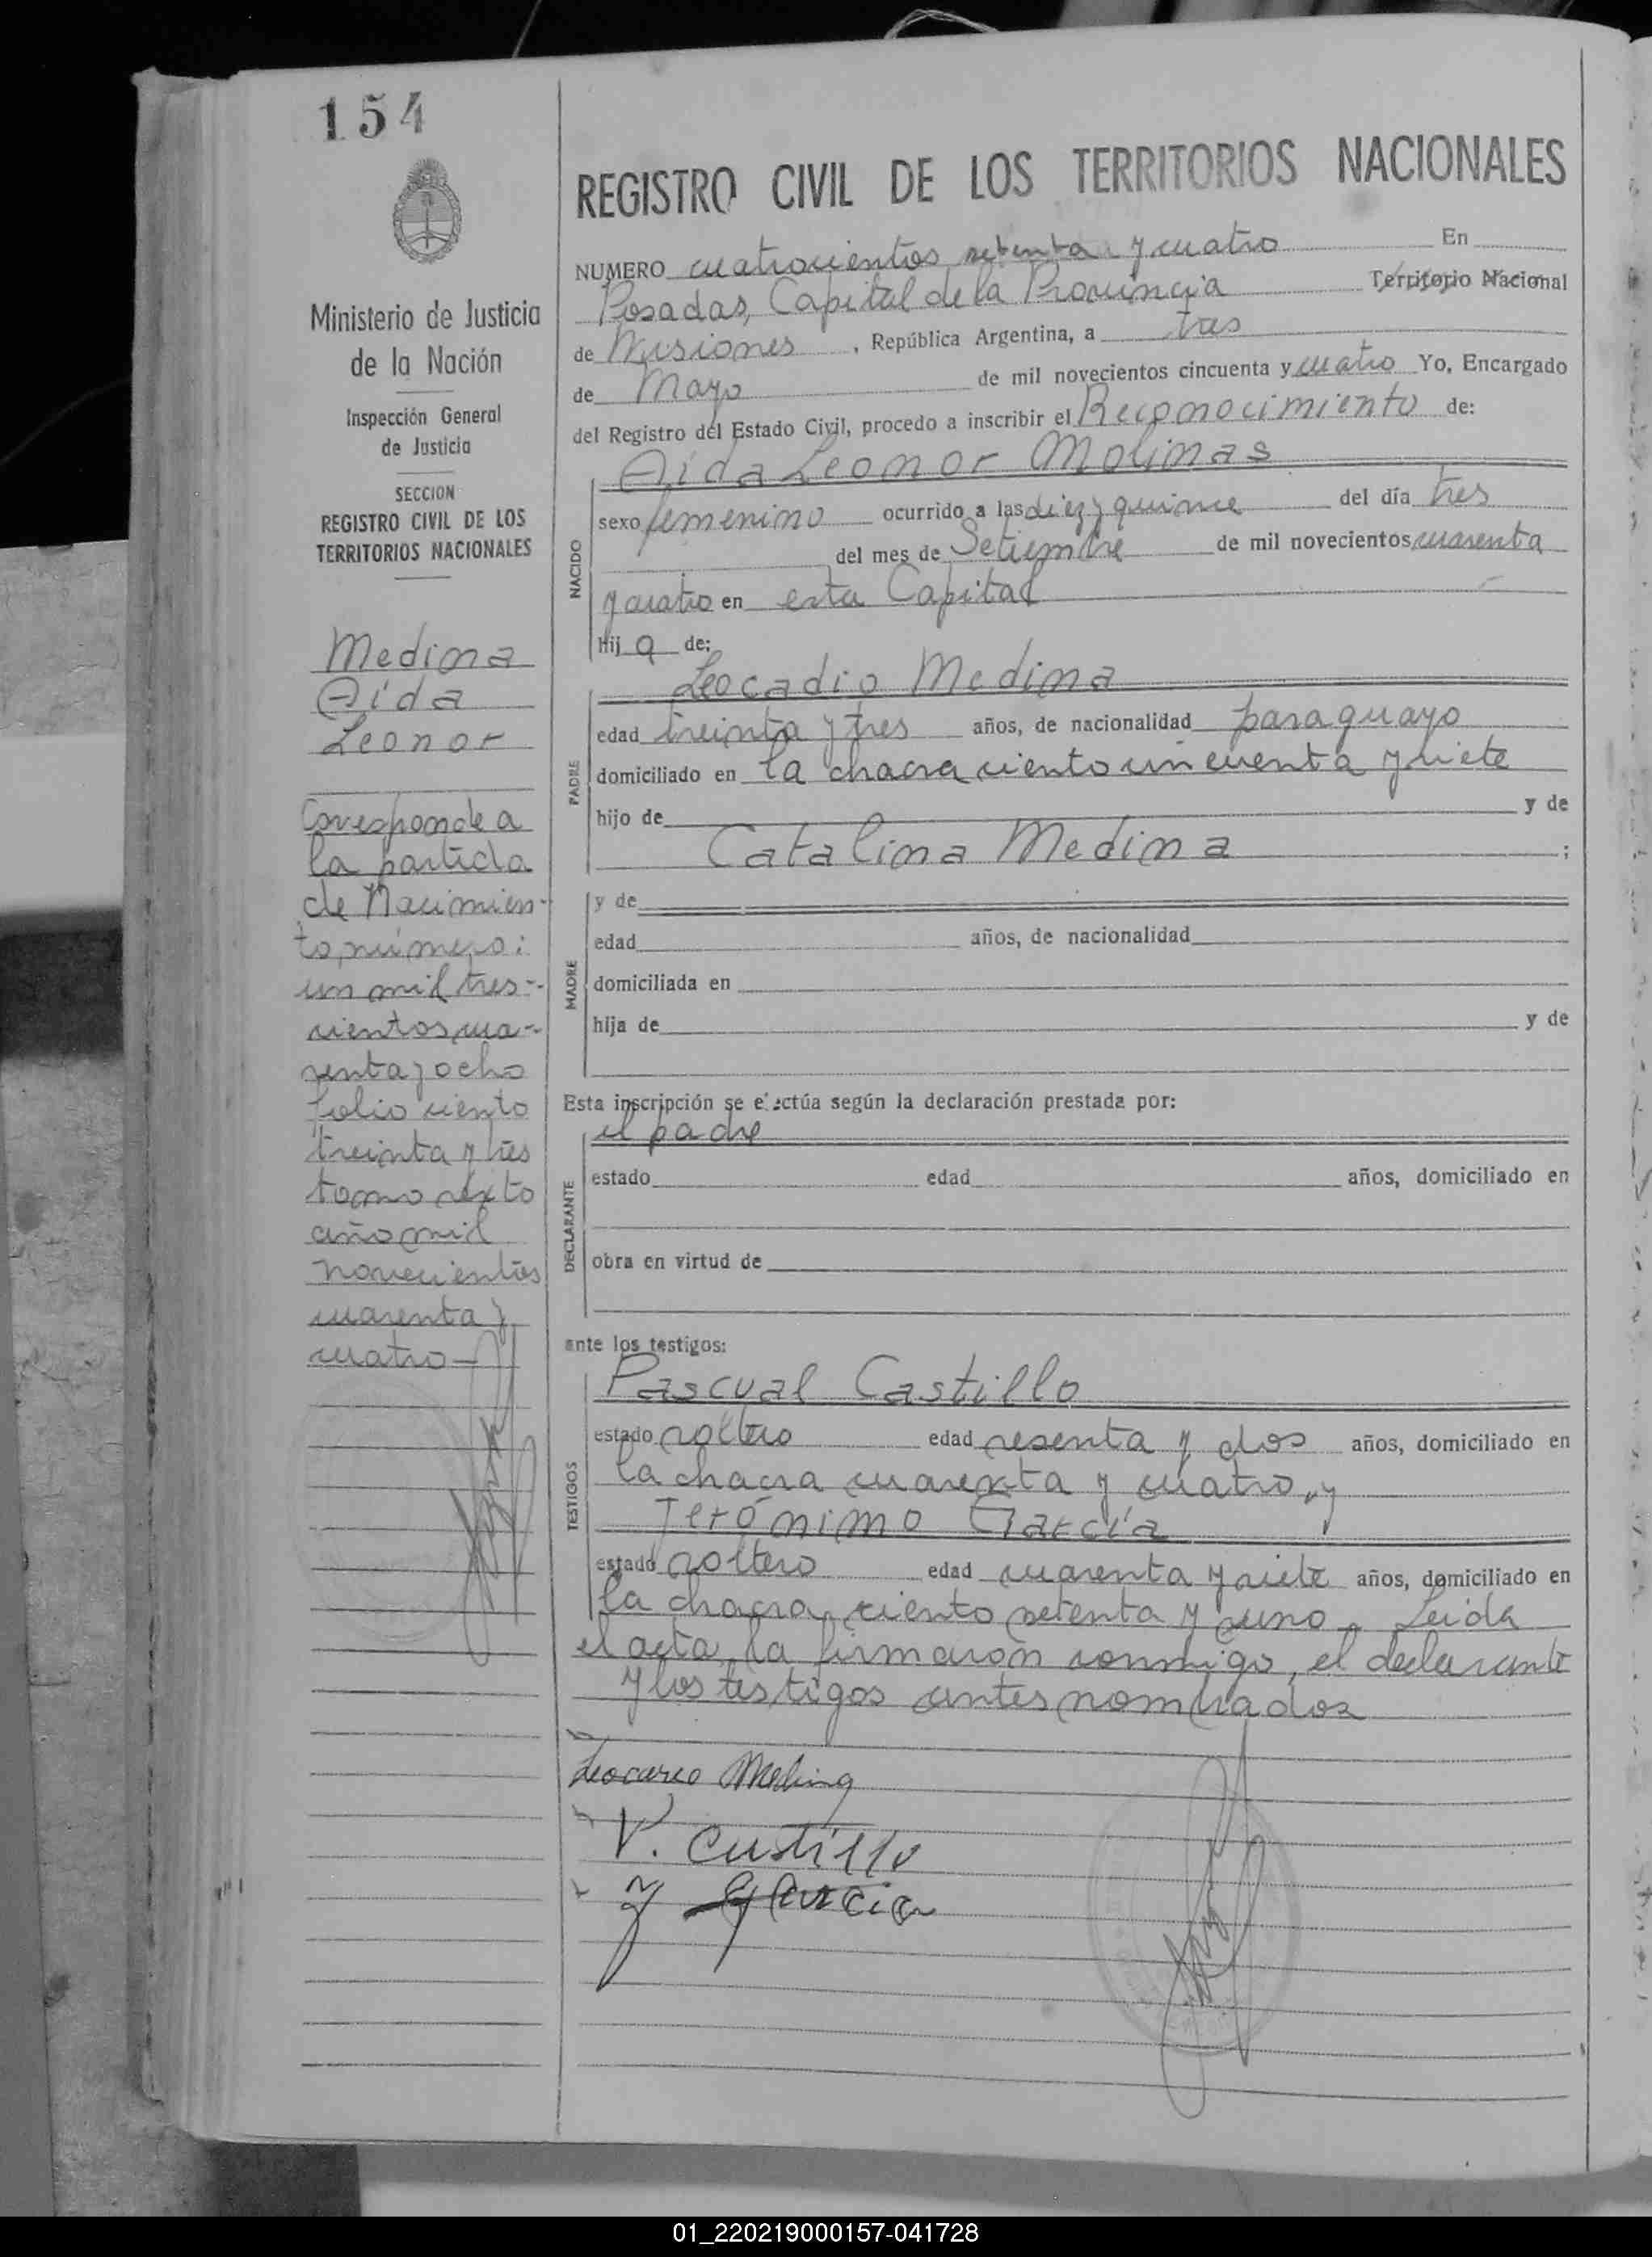 154
Ministerio de Justicia
de la Nación
Inspección General
de Justicia
SECCION
REGISTRO CIVIL DE LOS
TERRITORIOS NACIONALES
Medina
Aída
Leonor
Corresponde a
la partida
de Nacimien-
to, número:
un mil tres-
cientos cua-
renta y ocho
folio ciento
treinta y tres
tomo sexto
año mil
novecientos
cuarenta y
cuatro
REGISTRO CIVIL DE LOS TERRITORIOS NACIONALES
NUMERO cuatrocientos setenta y cuatro En
Posadas, Capital de la Provincia Territorio Nacional
de Misiones, República Argentina, a tres
de Mayo de mil novecientos cincuenta y cuatro Yo, Encargado
del Registro del Estado Civil, procedo a inscribir el Reconocimiento de:
NACIDO
Aída Leonor Molinas
sexo femenino ocurrido a las diez y quince del día tres
del mes de Setiembre de mil novecientos cuarenta
y cuatro en esta Capital
hija de:
PADRE
Leocadio Medina
edad treinta y tres años, de nacionalidad paraguayo
domiciliado en la chacra ciento cincuenta y siete
hijo de y de
Catalina Medina ;
MADRE
y de
edad años, de nacionalidad
domiciliada en
hija de y de
Esta inscripción se efectúa según la declaración prestada por:
DECLARANTE
el padre
estado edad años, domiciliado en
obra en virtud de
ante los testigos:
TESTIGOS
Pascual Castillo
estado soltero edad sesenta y dos años, domiciliado en
la chacra cuarenta y cuatro, y
Jerónimo García
estado soltero edad cuarenta y siete años, domiciliado en
la chacra ciento setenta y uno. Leída
el acta, la firmaron conmigo, el declarante
y los testigos antes nombrados
Leocadio Medina
P. Castillo
J Garcia
01_220219000157-041728